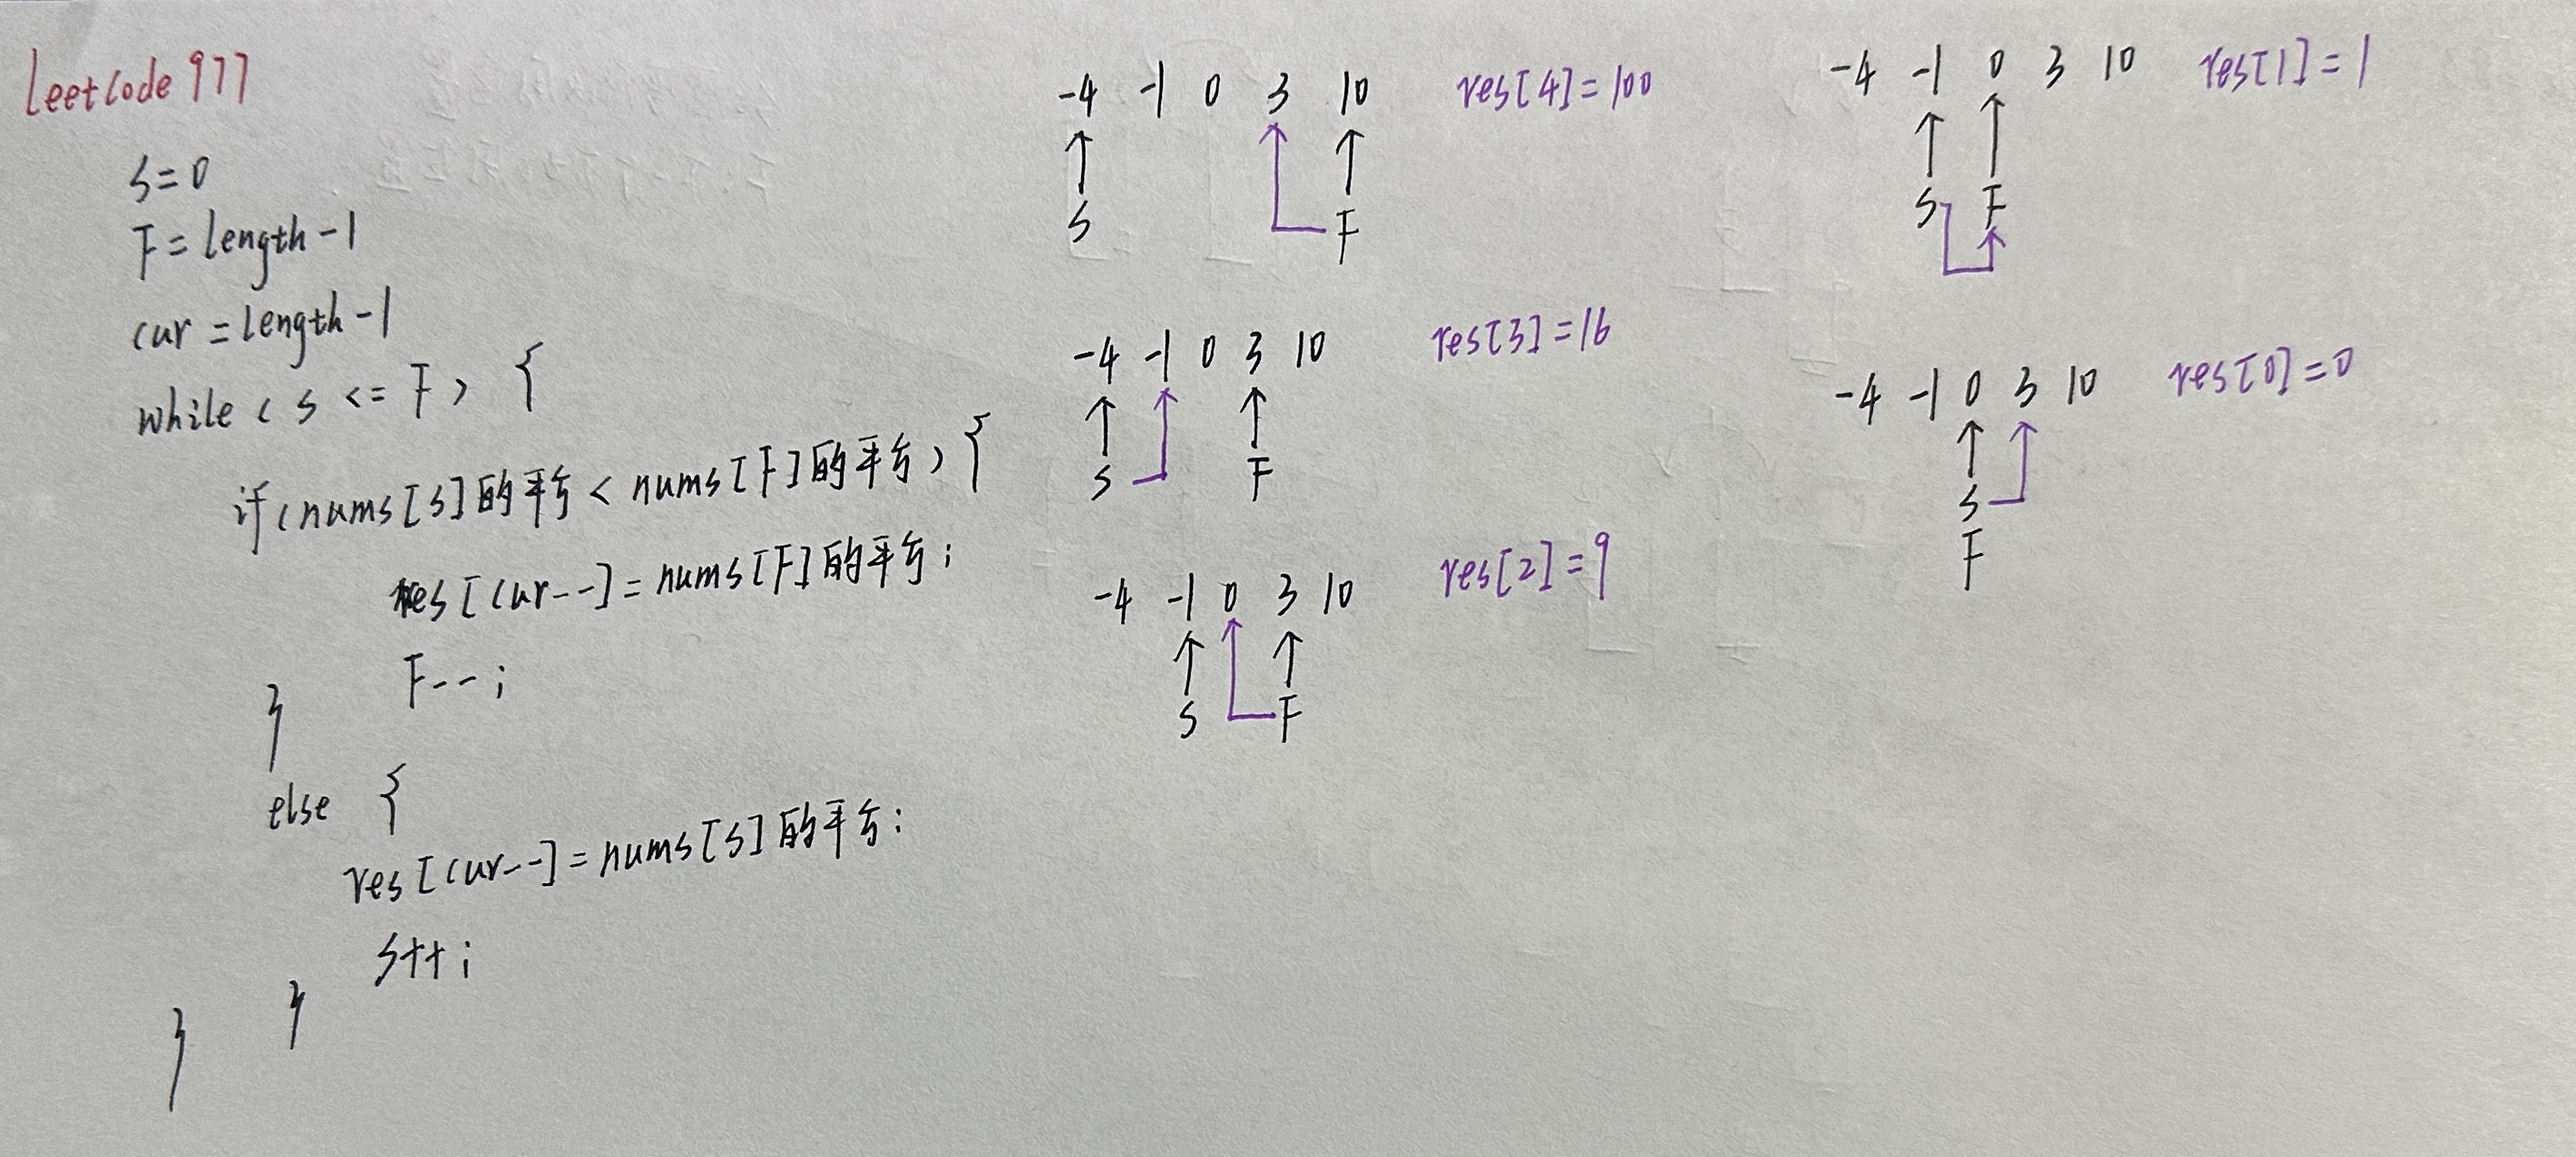 leetcode 977
s=0
F=length-1
cur=length-1
while(s<=F) {
if(nums[s]的平方<nums[F]的平方){
res[cur--]=nums[F]的平方;
F--;
}
else {
res[cur--]=nums[s]的平方;
s++;
}
}
-4 -1 0 3 10 res[4]=100
S F
-4 -1 0 3 10 res[3]=16
S F
-4 -1 0 3 10 res[2]=9
S F
-4 -1 0 3 10 res[1]=1
S F
-4 -1 0 3 10 res[0]=0
S
F